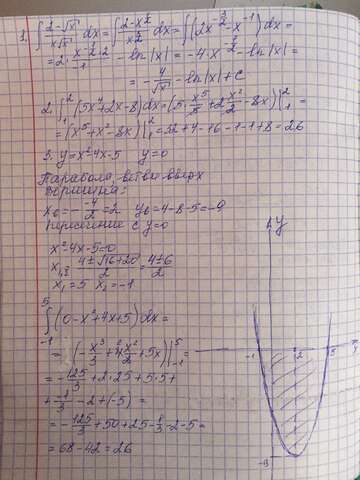 1. ∫ (2-√x)/(x√x) dx = ∫ (2-x^(1/2))/(x·x^(1/2)) dx = ∫ (2x^(-3/2) - x^(-1)) dx =
= 2·x^(-1/2)·2/(-1) - ln|x| = -4·x^(-1/2) - ln|x| =
= -4/√x - ln|x| + C
2. ∫₁² (5x⁴+2x-8)dx = (5·x⁵/5 + 2x²/2 - 8x)|₁² =
= (x⁵+x²-8x)|₁² = 32+4-16-1-1+8 = 26
3. y=x²-4x-5 y=0
Парабола, ветви вверх
вершина:
x₀ = -(-4)/2 = 2 y₀=4-8-5=-9
Пересечение с y=0
x²-4x-5=0
x₁,₂ = (4±√(16+20))/2 = (4±6)/2
x₁=5 x₂=-1
∫₋₁⁵ (0-x²+4x+5)dx =
= (-x³/3 + 4x²/2 + 5x)|₋₁⁵ =
= -125/3 + 2·25 + 5·5 +
+ -1/3 - 2 + (-5) =
= -125/3 + 50 + 25 - 1/3 - 2 - 5 =
= 68 - 42 = 26
y
-1 2 5 x
-9